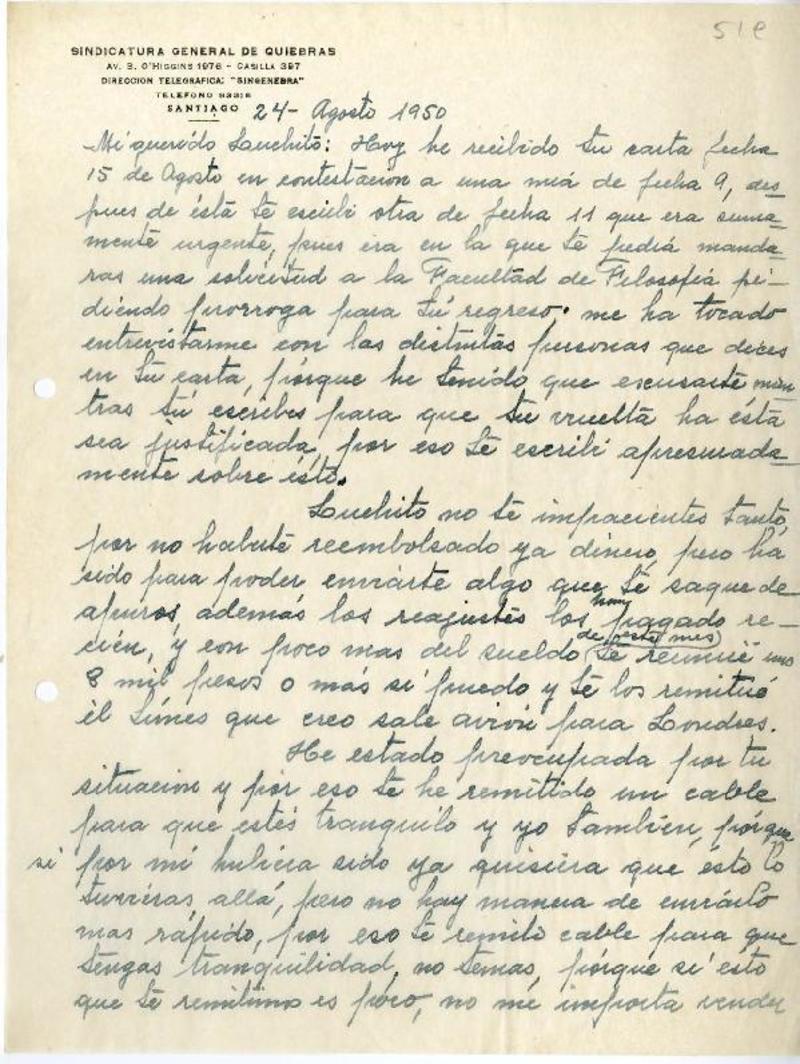 51e
SINDICATURA GENERAL DE QUIEBRAS
AV. B. O'HIGGINS 1976 - CASILLA 397
DIRECCION TELEGRAFICA: "SINGENEBRA"
TELEFONO 83316
SANTIAGO 24- Agosto 1950
Mi querido Luchito: Hoy he recibido tu carta fecha
15 de Agosto en contestación a una miá de fecha 9, des
pues de ésta té escribi otra de fecha 11 que era suma
mente urgente, pues era en la que té pediá manda
ras una solicitud a la Facultad de Filosofiá pi-
diendo prorroga para tú regreso. me ha tocado
entrevistarme con las distintas personas que dices
en tu carta, pórque he tenido que escusarte mien
tras tú escribes para que tu vuelta ha ésta
sea justificada, por eso té escribi apresurada
mente sobre ésto.
Luchito no té impacientes tanto,
por no haberté reembolsado ya dinero, pero ha
sido para poder enviárte algo que té saque de
apuros, además los reajustés los han pagado re-
cién, y con poco mas del sueldo (de este mes) té reuniré uno
8 mil pesos o más si puedo y té los remitiré
él Lúnes que creo sale avión para Londres.
He estado preocupada por tu
situacion y pór eso té he remitido un cable
para que estés tranquilo y yo tambien, pórque
si por mi hubiera sido ya quisiera que ésto lo
tuvieras allá, pero no hay manera de enviárlo
mas rápido, por eso té remito cable para que
tengas tranquilidad, no temas, pórque si ésto
que té remitimos es póco, no me importa vender